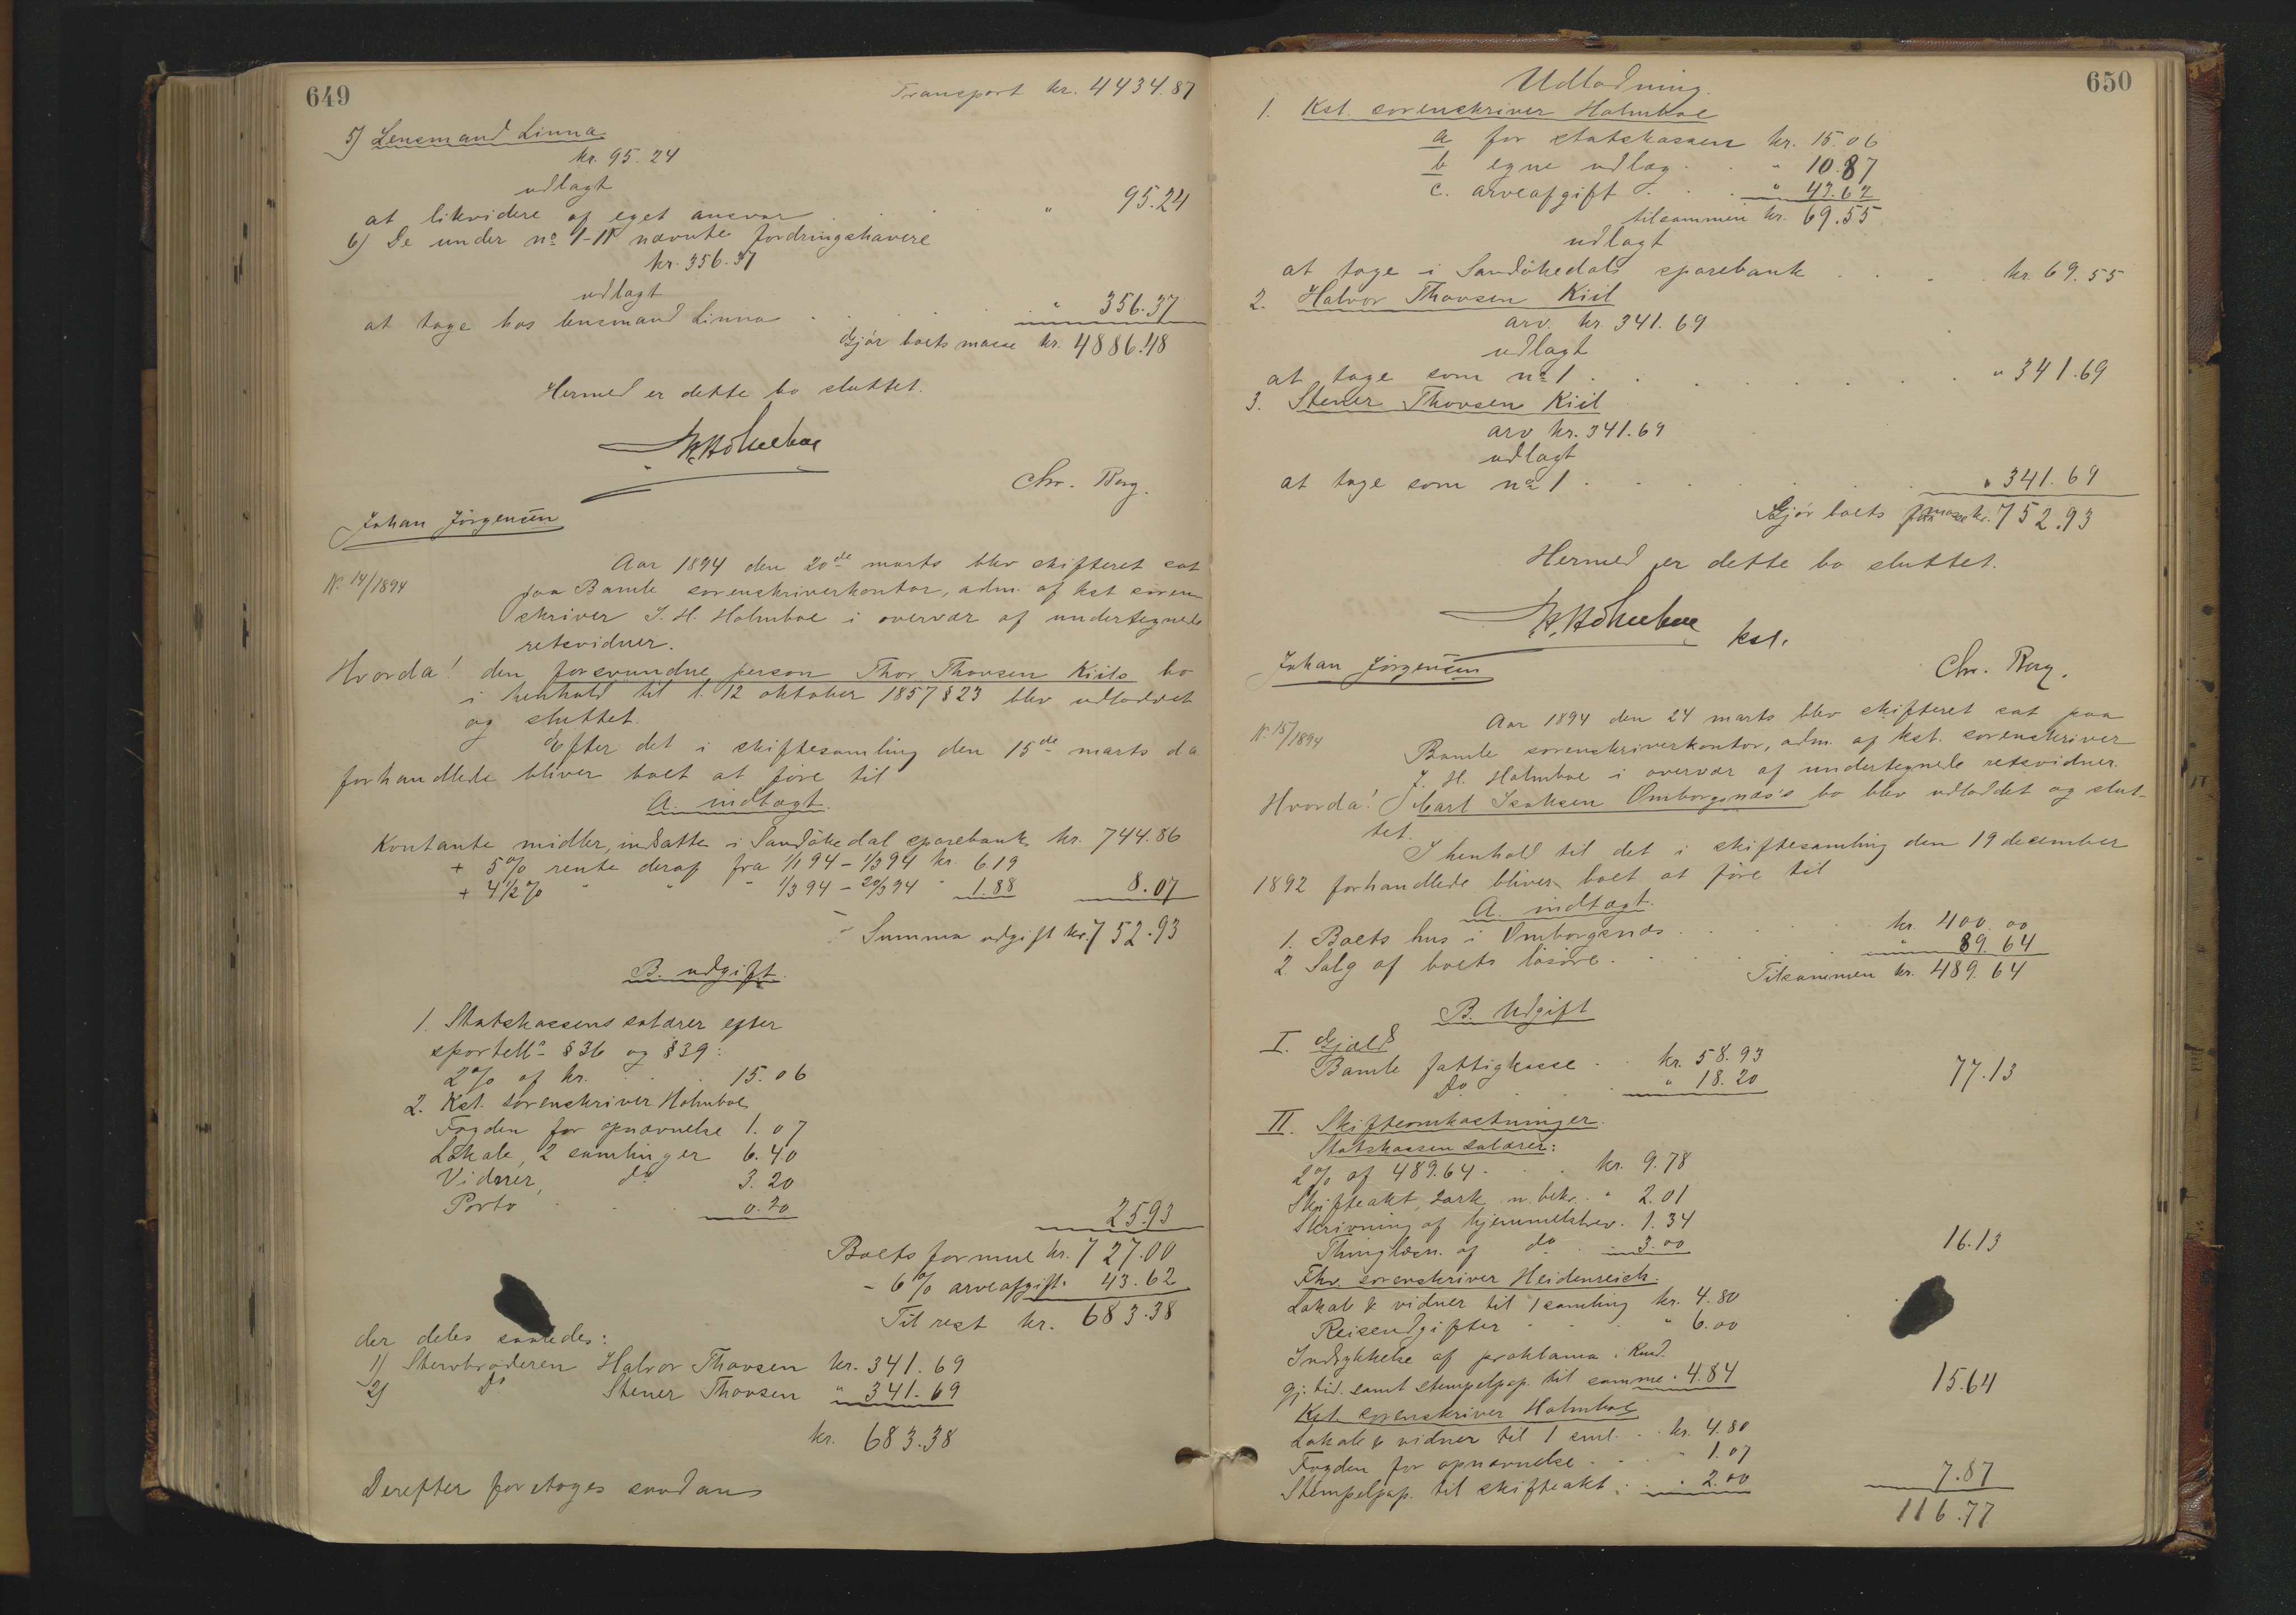 649
Transport kr. 4434.87
5) Lensmand Linna
kr. 95.24
udlagt
at likvidere af eget ansvar . . . . " 95.24
6) De under no 1-11 nævnte fordringshavere
kr. 356.37
udlagt
at tage hos lensmand Linna . . . . " 356.37
Gjør boets masse kr. 4886.48
Hermed er dette bo sluttet.
Chr. Borg.
Johan Jörgensen
N. 14/1894
Aar 1894 den 20de marts blev skifteret sat
paa Bamle sorenskriverkontor, adm. af kst. soren-
skriver J. H. Holmboe i overvær af undertegnede
retsvidner.
Hvorda! den forsvundne person Thor Thovsen Kiils bo
i henhold til l. 12 oktober 1857 § 23 blev udloddet
og sluttet.
Efter det i skiftesamling den 15de marts d.a.
forhandlede bliver boet at føre til
A. indtægt.
Kontante midler, indsatte i Sandökedal sparebank kr. 744.86
+ 5% rente deraf fra 1/1 94 - 1/3 94 kr. 6.19
+ 4 1/2 % " " " 1/3 94 - 20/3 94 " 1.88 8.07
Summa udgift kr. 752.93
B. udgift.
1. Statskassens salærer efter
sportell. § 36 og § 39:
2% af kr. . . . 15.06
2. Kst. sorenskriver Holmboe
Fogden for opnævnelse 1.07
Lokale, 2 samlinger 6.40
Vidner, do 3.20
Porto . . . 0.20 25.93
Boets formue kr. 727.00
- 6% arveafgift " 43.62
Til rest kr. 683.38
der deles saaledes:
1) Stervbroderen Halvor Thovsen kr. 341.69
2) Do Stener Thovsen " 341.69
kr. 683.38
Derefter foretoges saadan
650
Udlodning.
1. Kst. sorenskriver Holmboe
a for statskassen kr. 15.06
b egne udlæg . . " 10.87
c. arveafgift . . . " 43.62
tilsammen kr. 69.55
udlagt
at tage i Sandökedals sparebank . . . . kr. 69.55
2. Halvor Thovsen Kiil
arv. kr. 341.69
udlagt
at tage som no 1 . . . . . . " 341.69
3. Stener Thovsen Kiil
arv kr. 341.69
udlagt
at tage som no 1 . . . . . " 341.69
Gjør boets masse kr. 752.93
Hermed er dette bo sluttet.
kst.
Johan Jörgensen
Chr. Borg.
N. 15/1894
Aar 1894 den 24 marts blev skifteret sat paa
Bamle sorenskriverkontor, adm. af kst. sorenskriver
J. H. Holmboe i overvær af undertegnede retsvidner.
Hvorda! Carl Isaksen Omborgsnæs's bo blev udloddet og slut-
tet.
I henhold til det i skiftesamling den 19 december
1892 forhandlede bliver boet at føre til
A. indtægt.
1. Boets hus i Omborgsnæs . . . . kr. 400.00
2. Salg af boets løsøre . . . . " 89.64
Tilsammen kr. 489.64
B. Udgift
I. Gjæld
Bamle fattigkasse . . kr. 58.93
Do . . " 18.20 77.13
II. Skifteomkostninger.
Statskassen salærer:
2% af 489.64 . . . kr. 9.78
Skifteakt, 2 ark m. bekr. . " 2.01
Skrivning af hjemmelsbrev . 1.34
Thinglæsn. af do . . 3.00 16.13
Fhv. sorenskriver Heidenreich.
Lokale & vidner til 1 samling kr. 4.80
Reiseudgifter . . . " 6.00
Indrykkelse af proklama i Kund-
gj. tid. samt stempelpap. til samme . 4.84 15.64
Kst. sorenskriver Holmboe
Lokale & vidner til 1 saml. . . kr. 4.80
Fogden for opnævnelse . . . " 1.07
Stempelpap. til skifteakt . . " 2.00 7.87
116.77